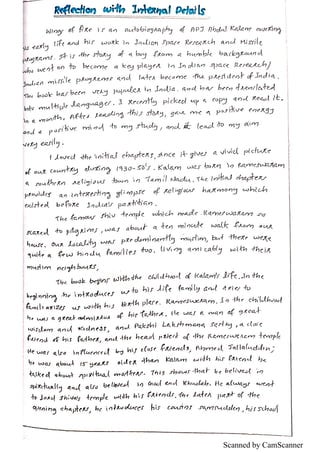 Reflection with Internal Details
Wings of fire is an autobiography of APJ Abdul Kalam covering
his early life and his work in Indian Space Research and Missile
programs. It is the story of a boy from a humble background
who went on to become a key player in Indian space Research/
Indian missile programs and later became the president of India.
The book has been very popular in India, and has been translated
into multiple languages. I recently picked up a copy and Read it.
in a month. After reading this story, gave me a positive energy
and a positive mind to my study, and lead to my aim
very easily.
I loved the initial chapters, since it gives a vivid picture
of our country during 1930-50's. Kalam was born in Rameswaram
a southern religious town in Tamil Nadu. The initial chapters
provides an interesting glimpse of religious harmony which
existed before India's partition.
The famous shiv temple which made Rameswaram so
scared to pilgrims, was about a ten minute walk from our
house. Our locality was predominantly muslim, but there were
quite a few hindu families too, living amicably with their
muslim neighbours,
The book begins with the childhood of Kalam's life. In the
beginning he introduces us to his life family and tries to
familiarizes us with his birth place. Rameswaram. In the childhood
he was a great admirer of his father. He was a man of great
wisdom and kindness, and Pakshi Lakshmana Sastry, a close
friend of his father, and the head priest of the Rameswaram temple
He was also influenced by his close friends, Ahmed Jallaluddin,
he was about 15 years older than Kalam with his friend he
talked about spiritual matter. This shows that he believed in
spiritually and also beloved in God and Khudah. He always went
to lord Shiva's temple with his friends. the later part of the
opening chapters, he introduces his cousins Samsuddin, his school
Scanned by CamScanner